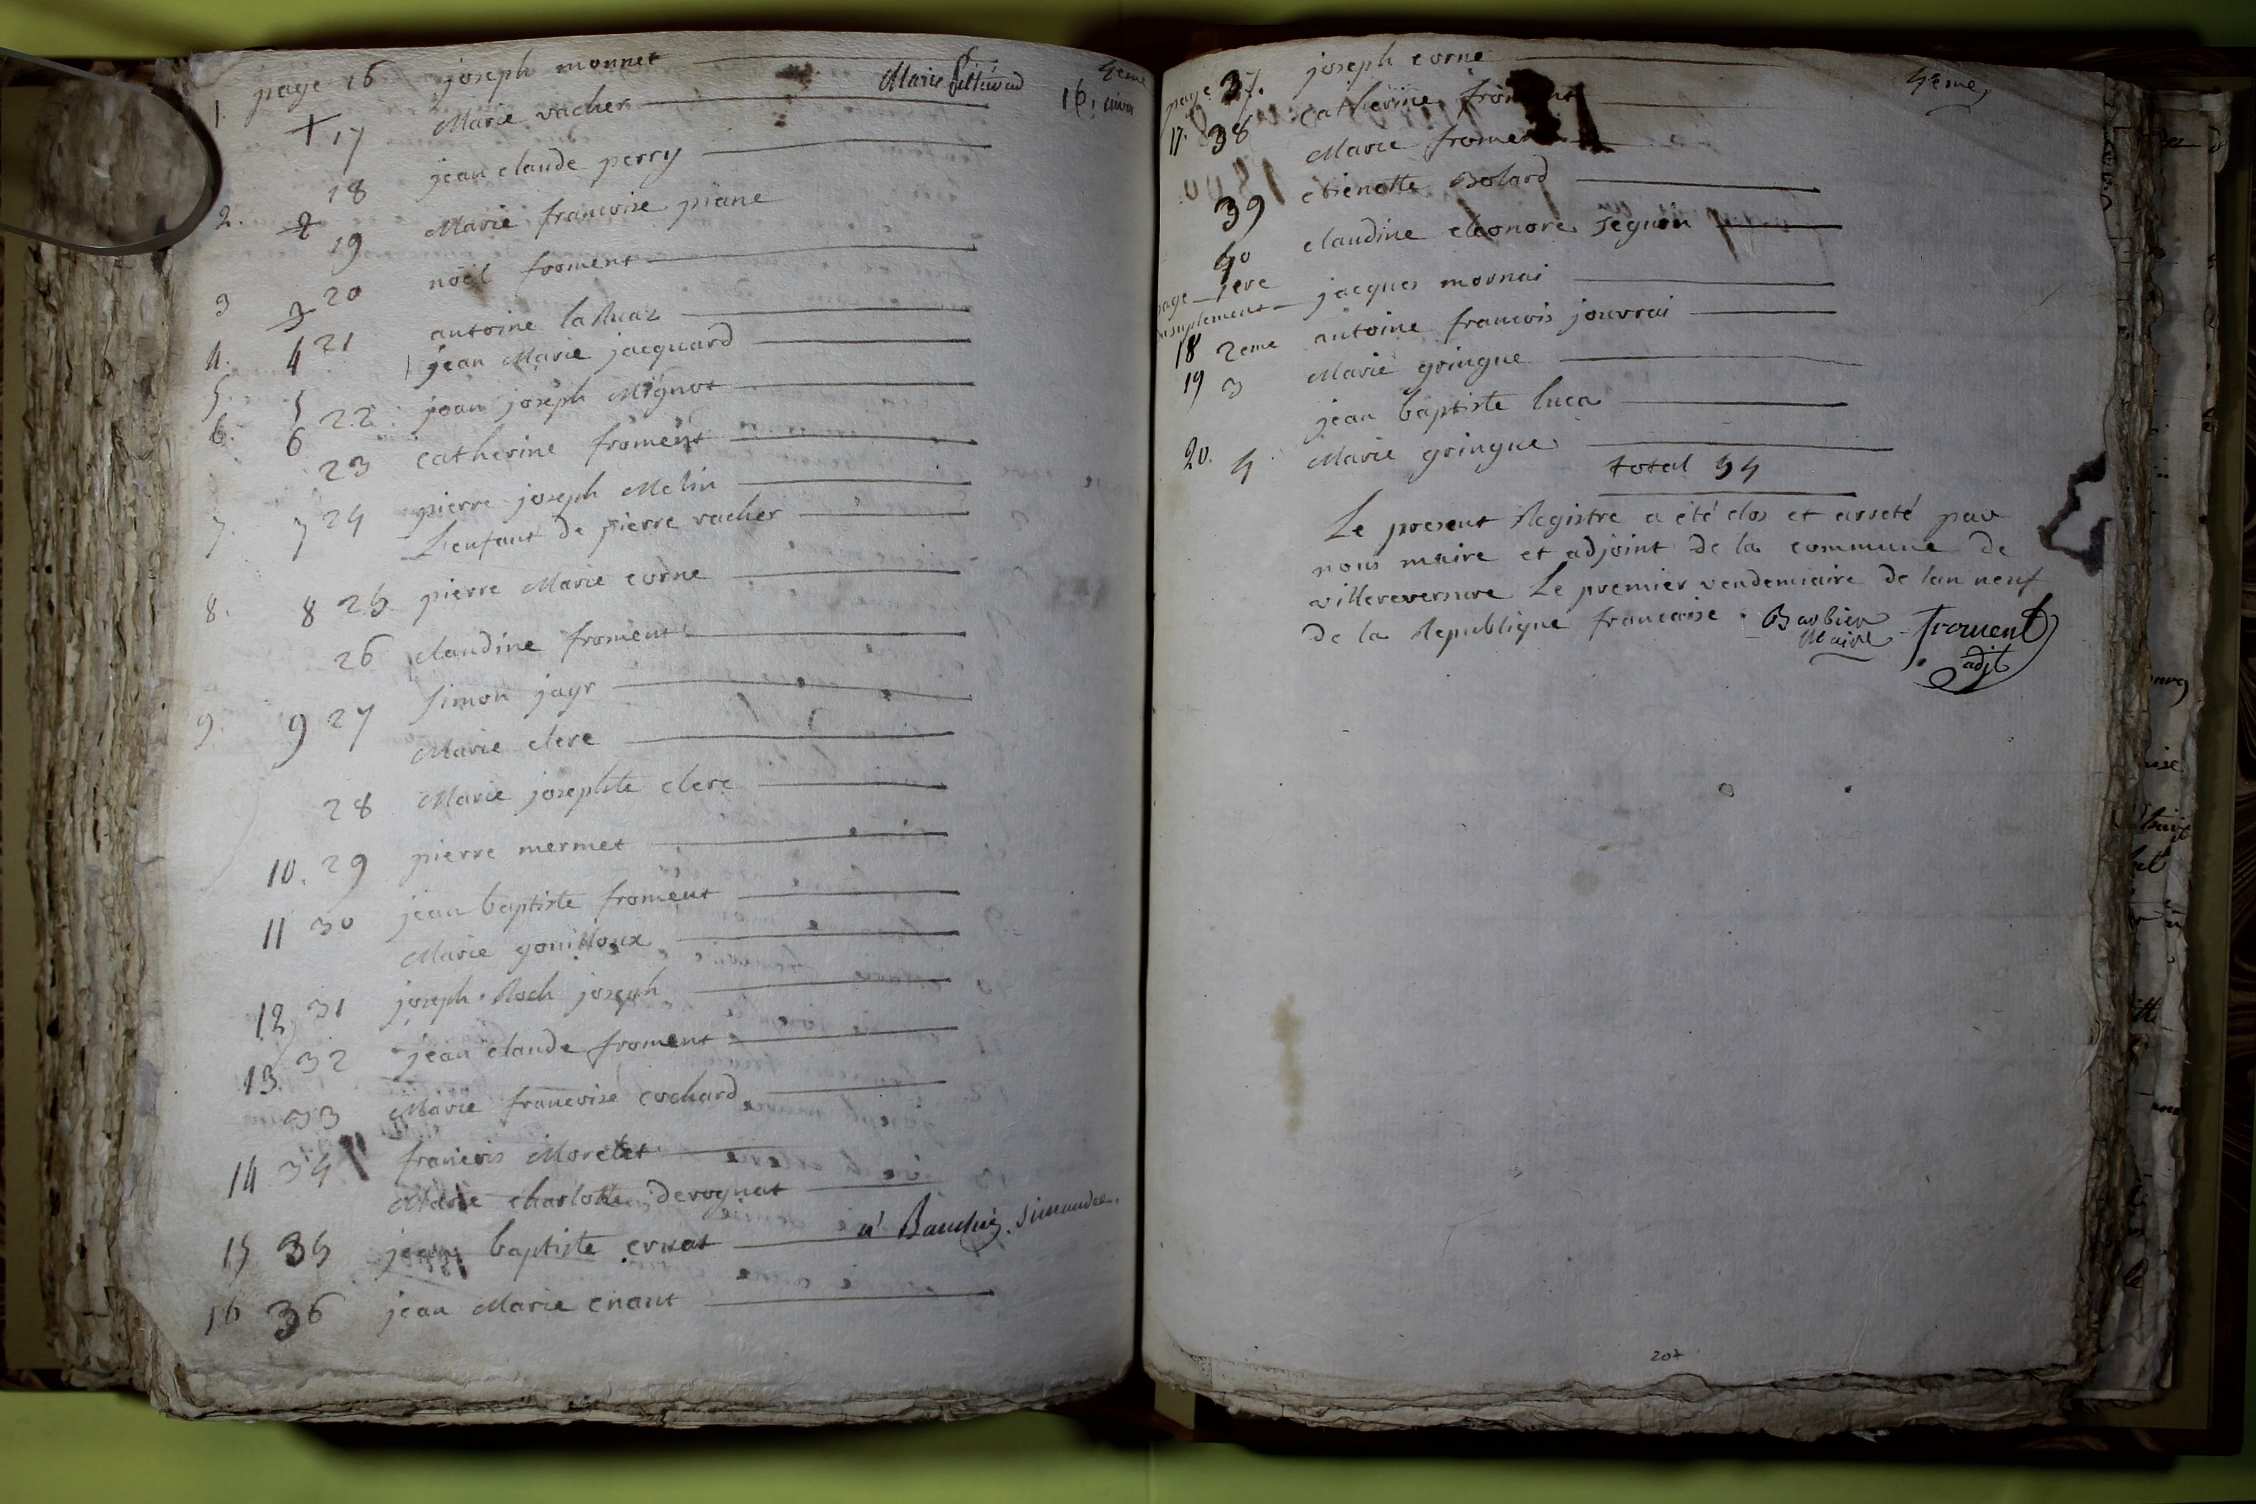 page 16 joseph monnet
4eme
1. 17 Marie vacher Marie 16.
18 jean claude perry
2. 2 19 Marie francoise piane
3 3 20 noël froment
antoine laRuaz
4. 4 21 jean Marie jacquard
5. 5 22 jean joseph Mignot
6. 6 23 catherine froment
7. 7 24 pierre joseph Melin
L'enfant de pierre vacher
8. 8 25 pierre Marie corne
26 claudine froment
9. 9 27 simon jayr
Marie clerc
28 Marie josephte clerc
10. 29 pierre mermet
11 30 jean baptiste froment
Marie gouilloux
12 31 joseph Roch joseph
13. 32 jean claude froment
33 Marie francoise cochard
14 34 francois Morelet
Marie charlotte derognat
15 35 jean baptiste a Simandre.
16 36 jean Marie
page 37. joseph corne
4eme
17. 38 catherine froment
Marie froment
39 etienette Bolard
40 claudine eleonore seguin
page 1ere jacques mornai
insuplement
18 2eme antoine francois jouvrai
19 3 Marie gringue
jean baptiste luca
20. 4 Marie gringue
total 34
Le present Registre a été clos et arreté par
nous maire et adjoint de la commune de
villereversure Le premier vendemiaire de lan neuf
de la Republique francaise . Barbier froment
Maire adjt
207